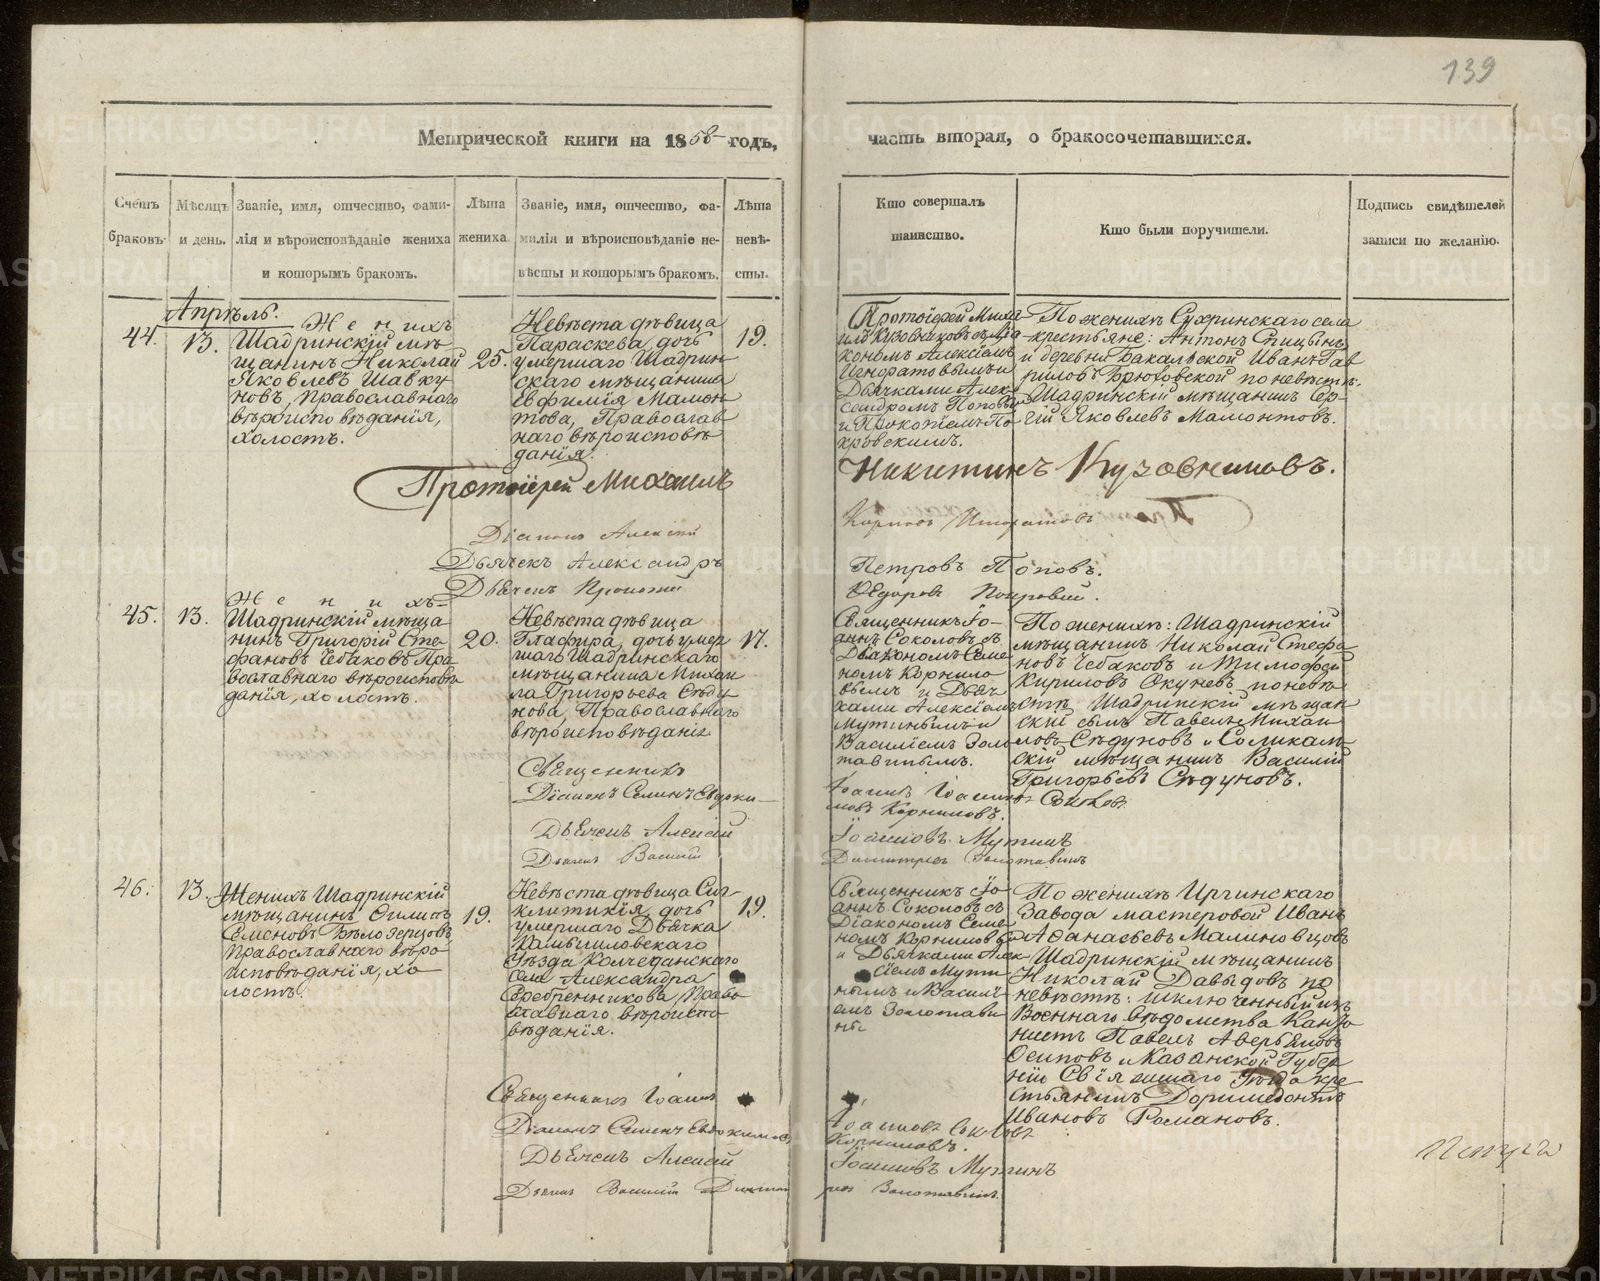 139
Метрической книги на 1858 годъ,
часть вторая, о бракосочетавшихся.
Счетъ браковъ.
Мѣсяцъ и день.
Званіе, имя, отчество, фами-
лія и вѣроисповѣданіе жениха
и которымъ бракомъ.
Лѣта
жениха.
Званіе, имя, отчество, фа-
милія и вѣроисповѣданіе не-
вѣсты и которымъ бракомъ.
Лѣта
невѣ-
сты.
Кто совершалъ
таинство.
Кто были поручители.
Подпись свидѣтелей
записи по желанію.
Апрѣль.
44.
13.
Женихъ
Шадринскій мѣ-
щанинъ Николай
Яковлевъ Шавку
новъ, православнаго
вѣроисповѣданія,
холостъ.
25.
Невѣста дѣвица
Параскева, дочь
умершаго Шадрин
скаго мѣщанина
Евфимія Мамон
това, Православ
наго вѣроисповѣ
данія.
19.
Протоіерей Миха
илъ Кузовниковъ съ Діа
кономъ Алексіемъ
Игнатовымъ и
Дьячками Алек
сандромъ Поповы
и Прокопіемъ По
кровскимъ.
По женихѣ Сухринскаго села
крестьяне: Антонъ Спицынъ
и деревни Бакальской Иванъ Гав
риловъ Брюховской по невѣстѣ:
Шадринскій мѣщанинъ Сер-
гій Яковлевъ Мамонтовъ.
Протоіерей Михаилъ
Никитинъ Кузовниковъ.
Діаконъ Алексій
Дьячекъ Александръ
Петровъ Поповъ.
Дьячекъ Прокопій
Ѳедоровъ Покровскій.
45.
13.
Женихъ
Шадринскій мѣща
нинъ Григорій Сте
фановъ Чебаковъ Пра
вославнаго вѣроисповѣ
данія, холостъ.
20.
Невѣста дѣвица
Глафира, дочь умер
шаго Шадринскаго
мѣщанина Михаи
ла Григорьева Сѣду
нова, Православнаго
вѣроисповѣданія.
17.
Священникъ Іо-
аннъ Соколовъ съ
Діакономъ Семе
номъ Корнило
вымъ и Дьяч
ками Алексіемъ
Мутинымъ и
Василіемъ Золо
тавинымъ.
По женихѣ: Шадринскій
мѣщанинъ Николай Стефа
новъ Чебаковъ и Тимофей
Кириловъ Окуневъ, по невѣ
стѣ Шадринскій мѣщан
скій сынъ Павелъ Михаи
ловъ Сѣдуновъ и Соликам
скій мѣщанинъ Василій
Григорьевъ Сѣдуновъ.
Священникъ
Іоаннъ Іоанновъ Соколовъ
Діаконъ Семенъ Евдоки-
мовъ Корниловъ.
Дьячекъ Алексій
Іоанновъ Мутинъ
Дьячекъ Василій
Димитріевъ Золотавинъ
46.
13.
Женихъ Шадринскій
мѣщанинъ Филиппъ
Семеновъ Бѣлозерцовъ
Православнаго вѣро
исповѣданія, хо
лостъ.
19.
Невѣста дѣвица Син
клитикія, дочь
умершаго Дьячка
Камышловскаго
Уѣзда Колчеданскаго
села Александра
Серебренникова, Право
славнаго вѣроиспо
вѣданія.
19.
Священникъ Іо
аннъ Соколовъ съ
Діакономъ Семе
номъ Корниловы
и Дьячками Алек
сіемъ Мути
нымъ и Василі
емъ Золотави
ны
По женихѣ Иргинскаго
Завода мастеровой Иванъ
Аѳанасьевъ Малиновцовъ
Шадринскій мѣщанинъ
Николай Давыдовъ по
невѣстѣ: исключенный изъ
Военнаго вѣдомства Канто
нистъ Павелъ Аверьяновъ
Осиповъ и Казанской Губер
ніи Свіяжскаго Уѣзда кре
стьянинъ Доримедонтъ
Ивановъ Романовъ.
Священникъ Іоаннъ
Іоанновъ Соколовъ
Діаконъ Семенъ Евдокимовъ
Корниловъ.
Дьячекъ Алексій
Іоанновъ Мутинъ
Дьячекъ Василій Димит
ріевъ Золотавинъ.
METRIKI.GASO-URAL.RU